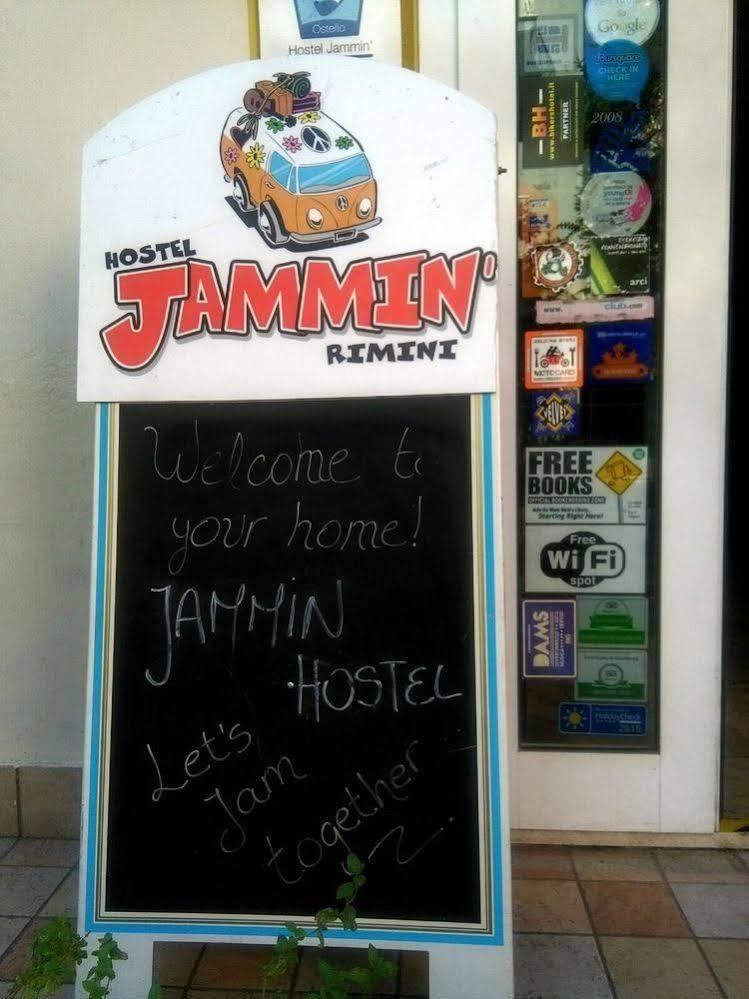 Ostello
Hostel Jammin'
HOSTEL
JAMMIN'
RIMINI
Welcome to
your home!
JAMMIN
HOSTEL
Let's
Jam
together
Google
foursquare
CHECK IN
HERE
BH
PARTNER
www.bikershotel.it
2008
arci
www.
club.com
MOTOCARD
VELVET
FREE
BOOKS
OFFICIAL BOOKCROSSING ZONE
Starting Right Here!
Free
Wi Fi
spot
DAMS
HolidayCheck
2015